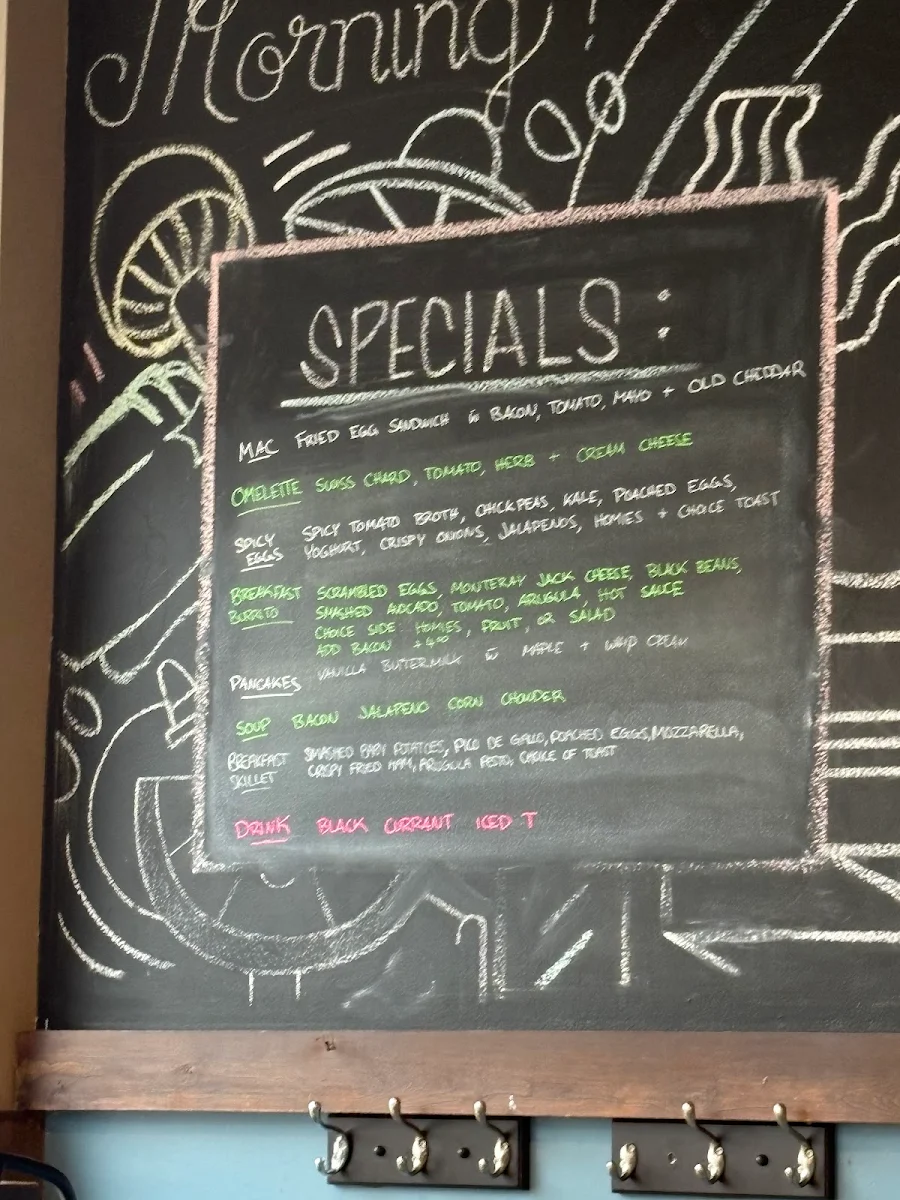 Morning!
SPECIALS:
MAC FRIED EGG SANDWICH w̄ BACON, TOMATO, MAYO + OLD CHEDDAR
OMELETTE SWISS CHARD, TOMATO, HERB + CREAM CHEESE
SPICY EGGS SPICY TOMATO BROTH, CHICKPEAS, KALE, POACHED EGGS,
YOGHURT, CRISPY ONIONS, JALAPENOS, HOMIES + CHOICE TOAST
BREAKFAST SCRAMBLED EGGS, MONTERAY JACK CHEESE, BLACK BEANS,
BURRITO SMASHED AVOCADO, TOMATO, ARUGULA, HOT SAUCE
CHOICE SIDE HOMIES, FRUIT, OR SALAD
ADD BACON +4.00
PANCAKES VANILLA BUTTERMILK w̄ MAPLE + WHIP CREAM
SOUP BACON JALAPENO CORN CHOWDER
BREAKFAST SMASHED BABY POTATOES, PICO DE GALLO, POACHED EGGS, MOZZARELLA,
SKILLET CRISPY FRIED HAM, ARUGULA PESTO, CHOICE OF TOAST
DRINK BLACK CURRANT ICED T